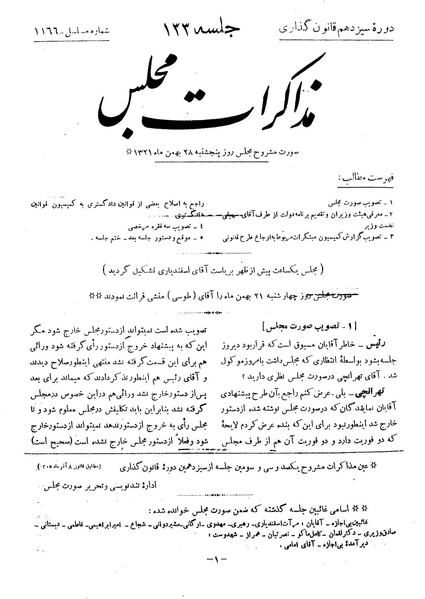 دورهٔ سیزدهم قانون گذاری
جلسه ۱۳۳
شماره مسلسل - ۱۱۶۶
مذاکرات مجلس
صورت مشروح مجلس روز پنجشنبه ۲۸ بهمن ماه ۱۳۲۱ *
فهرست مطالب :
۱ - تصویب صورت مجلس
۲ - معرفی هیئت وزیران و تقدیم برنامه دولت از طرف آقای سهیلی نخست وزیر
۳ - تصویب گزارش کمیسیون مبتکرات مربوط به ارجاع طرح قانونی
راجع به اصلاح بعضی از قوانین دادگستری به کمیسیون قوانین دادگستری
۴ - تصویب سه فقره مرخصی
۵ - موقع و دستور جلسه بعد - ختم جلسه .
( مجلس یکساعت پیش از ظهر بریاست آقای اسفندیاری تشکیل گردید )
صورت مجلس روز چهارشنبه ۲۱ بهمن ماه را آقای ( طوسی ) منشی قرائت نمودند **
[ ۱ - تصویب صورت مجلس ]
رئیس - خاطر آقایان مسبوق است که قرار بود دیروز
جلسه بشود بواسطهٔ انتظاری که مجلس داشت بامروز موکول
شد . آقای تهرانچی درصورت مجلس نظری دارید ؟
تهرانچی - بلی . عرض کنم راجع بآن طرح پیشنهادی
آقایان نمایندگان که درصورت مجلس نوشته شده ازدستور
خارج شد اینطور نبود برای این که بنده عرض کردم لایحهٔ
که دو فوریت دارد و دو فوریت آن هم از طرف مجلس
تصویب شده است نمیتواند ازدستور مجلس خارج شود مگر
این که به پیشنهاد خروج ازدستور رأی گرفته شود ورائی
هم برای این قسمت گرفته نشد منتهی اینطور صلاح دیدند
و آقای رئیس هم اینطور نذکر دادند که میماند برای بعد
پس از دستور خارج نشد ورائی هم در این خصوص درمجلس
گرفته نشد بنابراین باید تکلیفش درمجلس معلوم شود و تا
مجلس رأی به خروج ازدستور ندهد نمیتواند ازدستور خارج
شود و فعلاً ازدستور مجلس خارج نشده است (صحیح است)
* عین مذاکرات مشروح یکصد و سی و سومین جلسه از سیزدهمین دورهٔ قانون گذاری (مطابق قانون ۸ آذر ماه ۱۳۰۵)
ادارهٔ تندنویسی و تحریر صورت مجلس
* * اسامی غائبین جلسه گذشته که ضمن صورت مجلس خوانده شده :
غائبین بی اجازه - آقایان : مرآت اسفندیاری - رهبری - مهدوی - اورنگی - مشیردوانی - شجاع - امیرابراهیمی - فاطمی - دبستانی -
صادق وزیری - دکتر لقمان - کامل ماکو - نصرتیان - همراز - شهدوست .
دیرآمدهٔ بی اجازه - آقای امامی .
- ۱ -